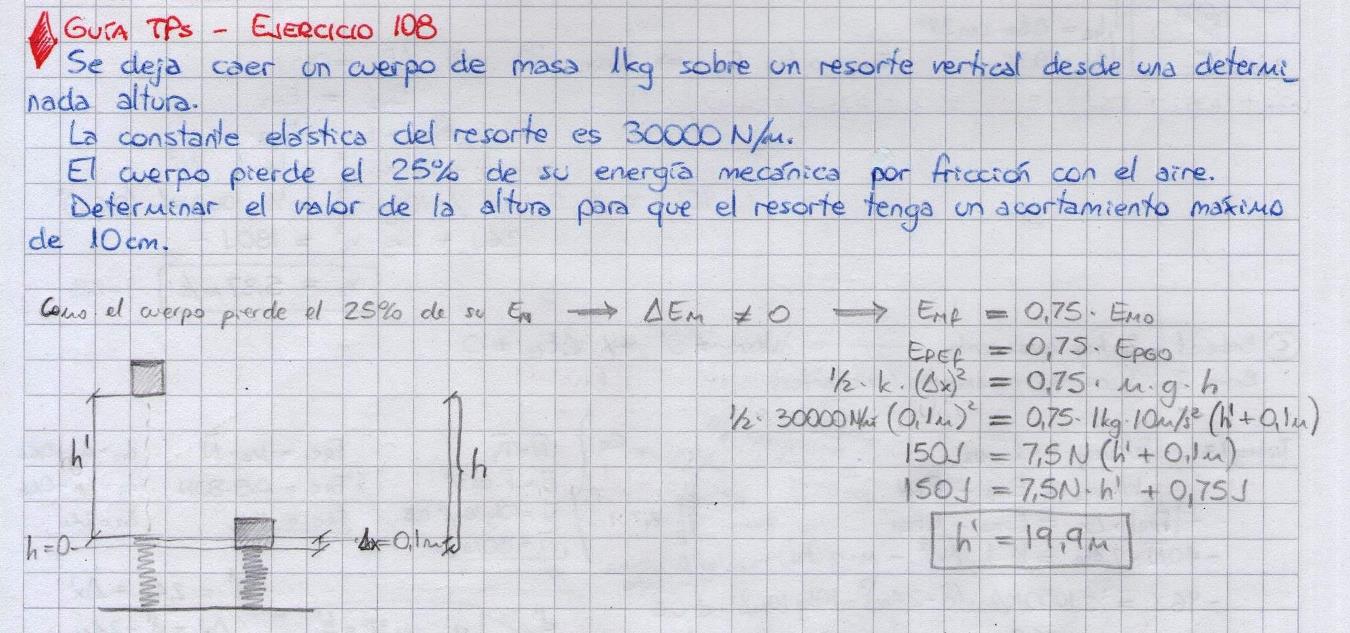 GUÍA TPs - EJERCICIO 108
Se deja caer un cuerpo de masa 1kg sobre un resorte vertical desde una determi_
nada altura.
La constante elástica del resorte es 30000 N/m.
El cuerpo pierde el 25% de su energía mecánica por fricción con el aire.
Determinar el valor de la altura para que el resorte tenga un acortamiento máximo
de 10cm.
Como el cuerpo pierde el 25% de su EM → ΔEM ≠ 0 → EMf = 0,75 · EMO
EPEf = 0,75 · EPGO
1/2 · k · (Δx)² = 0,75 · m · g · h
1/2 · 30000 N/m (0,1m)² = 0,75 · 1kg · 10m/s² (h' + 0,1m)
150J = 7,5 N (h' + 0,1m)
150J = 7,5N · h' + 0,75J
h' = 19,9m
h'
h
h=0
Δx=0,1m